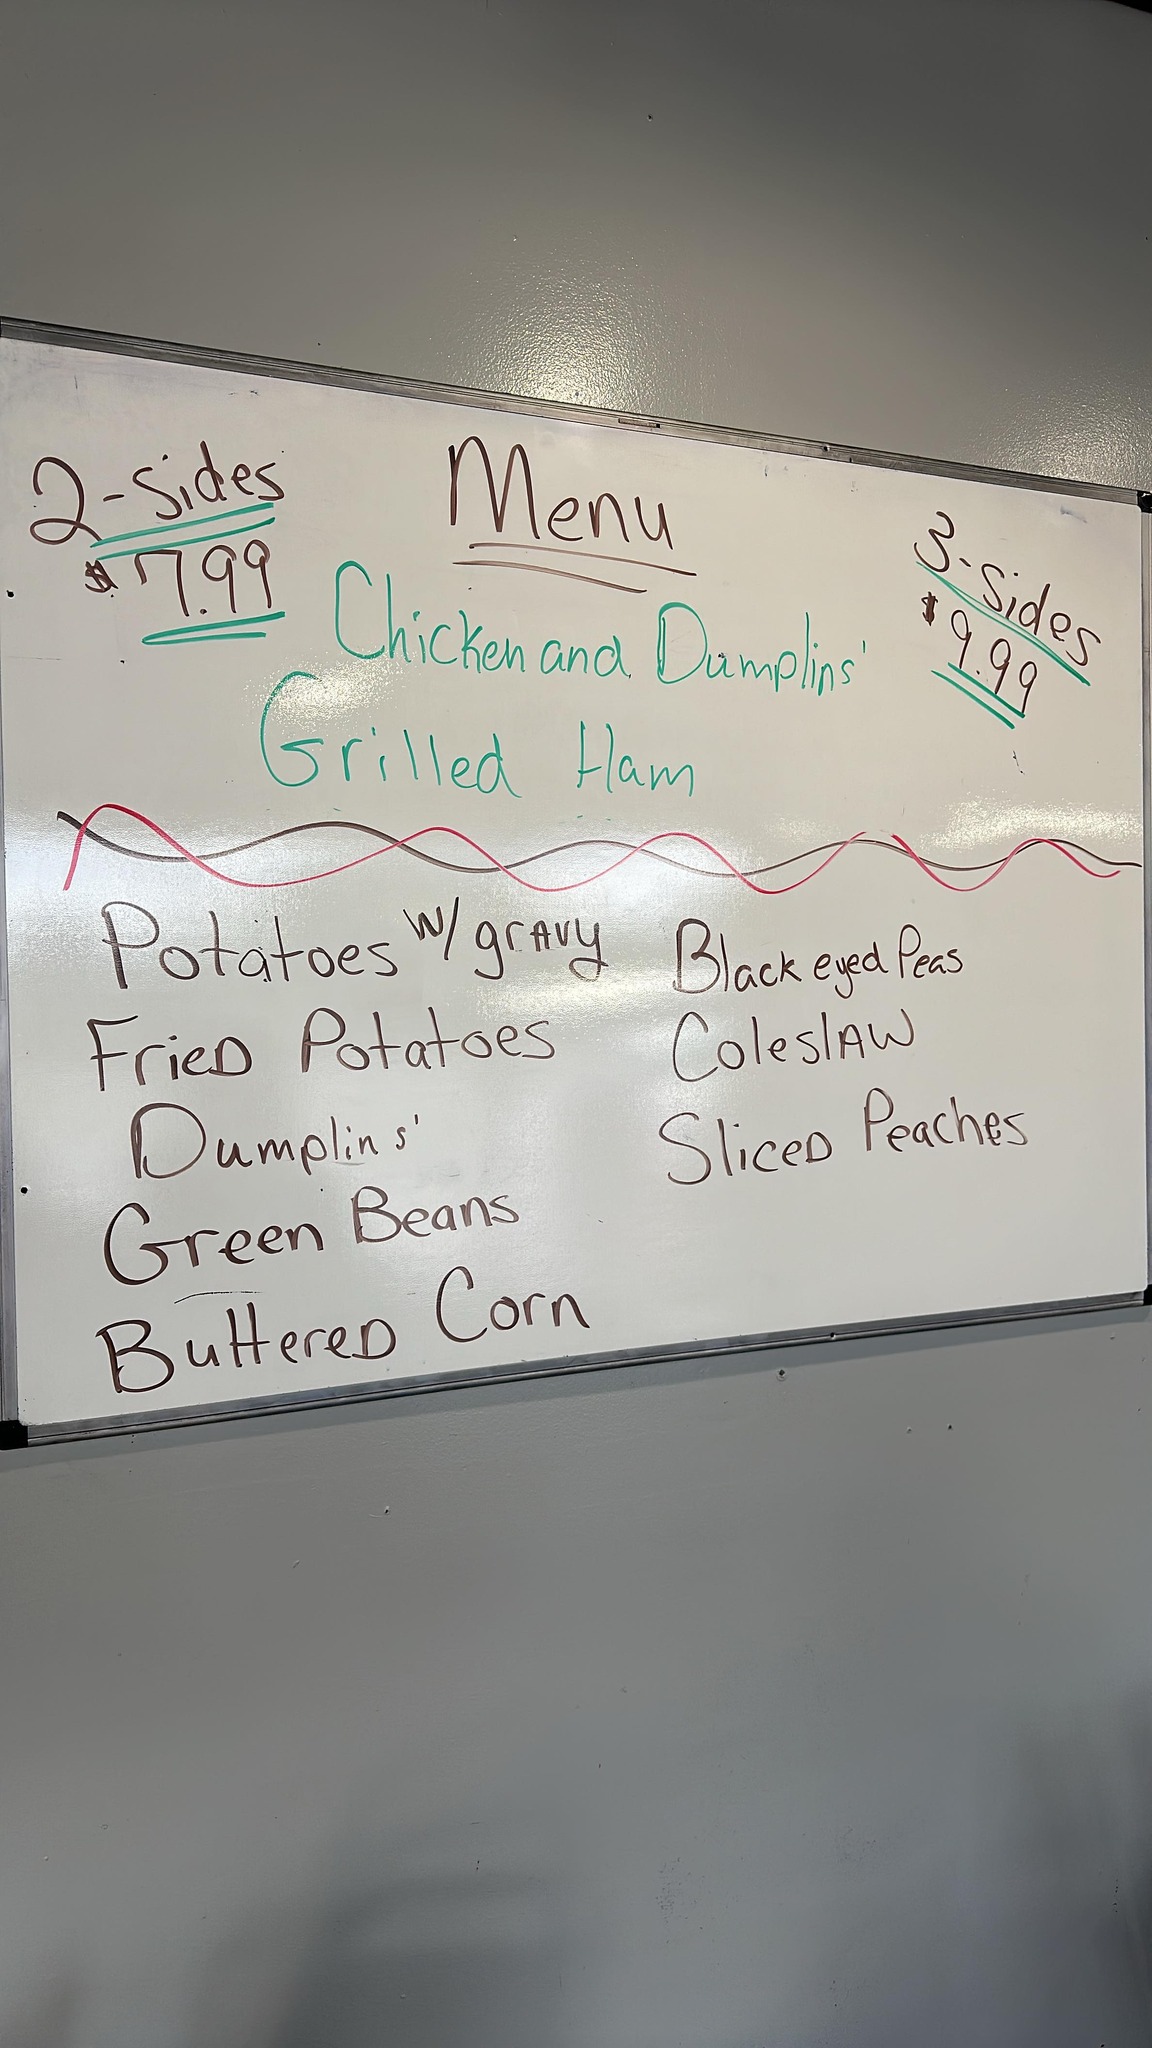 2-Sides
$7.99
Menu
3-Sides
$9.99
Chicken and Dumplins'
Grilled Ham
Potatoes w/ grAvy
FrieD Potatoes
Dumplins'
Green Beans
ButtereD Corn
Black eyed Peas
ColeslAW
SliceD Peaches